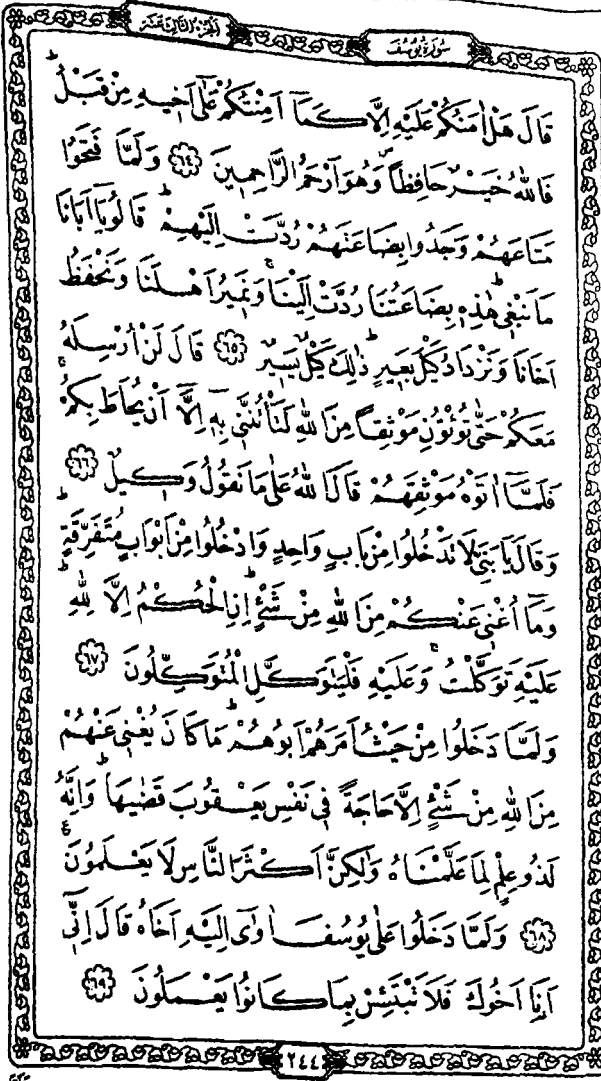 الجزء الثالث عشر
سورة يوسف
قَالَ هَلْ اٰمَنُكُمْ عَلَيْهِ اِلَّا كَمَٓا اَمِنْتُكُمْ عَلٰٓى اَخ۪يهِ مِنْ قَبْلُۜ
فَاللّٰهُ خَيْرٌ حَافِظاًۖ وَهُوَ اَرْحَمُ الرَّاحِم۪ينَ ﴿٦٤﴾ وَلَمَّا فَتَحُوا
مَتَاعَهُمْ وَجَدُوا بِضَاعَتَهُمْ رُدَّتْ اِلَيْهِمْۜ قَالُوا يَٓا اَبَانَا
مَا نَبْغ۪يۜ هٰذِه۪ بِضَاعَتُنَا رُدَّتْ اِلَيْنَاۚ وَنَم۪يرُ اَهْلَنَا وَنَحْفَظُ
اَخَانَا وَنَزْدَادُ كَيْلَ بَع۪يرٍۜ ذٰلِكَ كَيْلٌ يَس۪يرٌ ﴿٦٥﴾ قَالَ لَنْ اُرْسِلَهُ
مَعَكُمْ حَتّٰى تُؤْتُونِ مَوْثِقاً مِنَ اللّٰهِ لَتَأْتُنَّن۪ي بِه۪ٓ اِلَّٓا اَنْ يُحَاطَ بِكُمْۚ
فَلَمَّٓا اٰتَوْهُ مَوْثِقَهُمْ قَالَ اللّٰهُ عَلٰى مَا نَقُولُ وَك۪يلٌ ﴿٦٦﴾
وَقَالَ يَا بَنِيَّ لَا تَدْخُلُوا مِنْ بَابٍ وَاحِدٍ وَادْخُلُوا مِنْ اَبْوَابٍ مُتَفَرِّقَةٍۜ
وَمَٓا اُغْن۪ي عَنْكُمْ مِنَ اللّٰهِ مِنْ شَيْءٍۜ اِنِ الْحُكْمُ اِلَّا لِلّٰهِۜ
عَلَيْهِ تَوَكَّلْتُۚ وَعَلَيْهِ فَلْيَتَوَكَّلِ الْمُتَوَكِّلُونَ ﴿٦٧﴾
وَلَمَّا دَخَلُوا مِنْ حَيْثُ اَمَرَهُمْ اَبُوهُمْۜ مَا كَانَ يُغْن۪ي عَنْهُمْ
مِنَ اللّٰهِ مِنْ شَيْءٍ اِلَّا حَاجَةً ف۪ي نَفْسِ يَعْقُوبَ قَضٰيهَاۜ وَاِنَّهُ
لَذُو عِلْمٍ لِمَا عَلَّمْنَاهُ وَلٰكِنَّ اَكْثَرَ النَّاسِ لَا يَعْلَمُونَ۟
﴿٦٨﴾ وَلَمَّا دَخَلُوا عَلٰى يُوسُفَ اٰوٰٓى اِلَيْهِ اَخَاهُ قَالَ اِنّ۪ٓي
اَنَا۬ اَخُوكَ فَلَا تَبْتَئِسْ بِمَا كَانُوا يَعْمَلُونَ ﴿٦٩﴾
٢٤٤